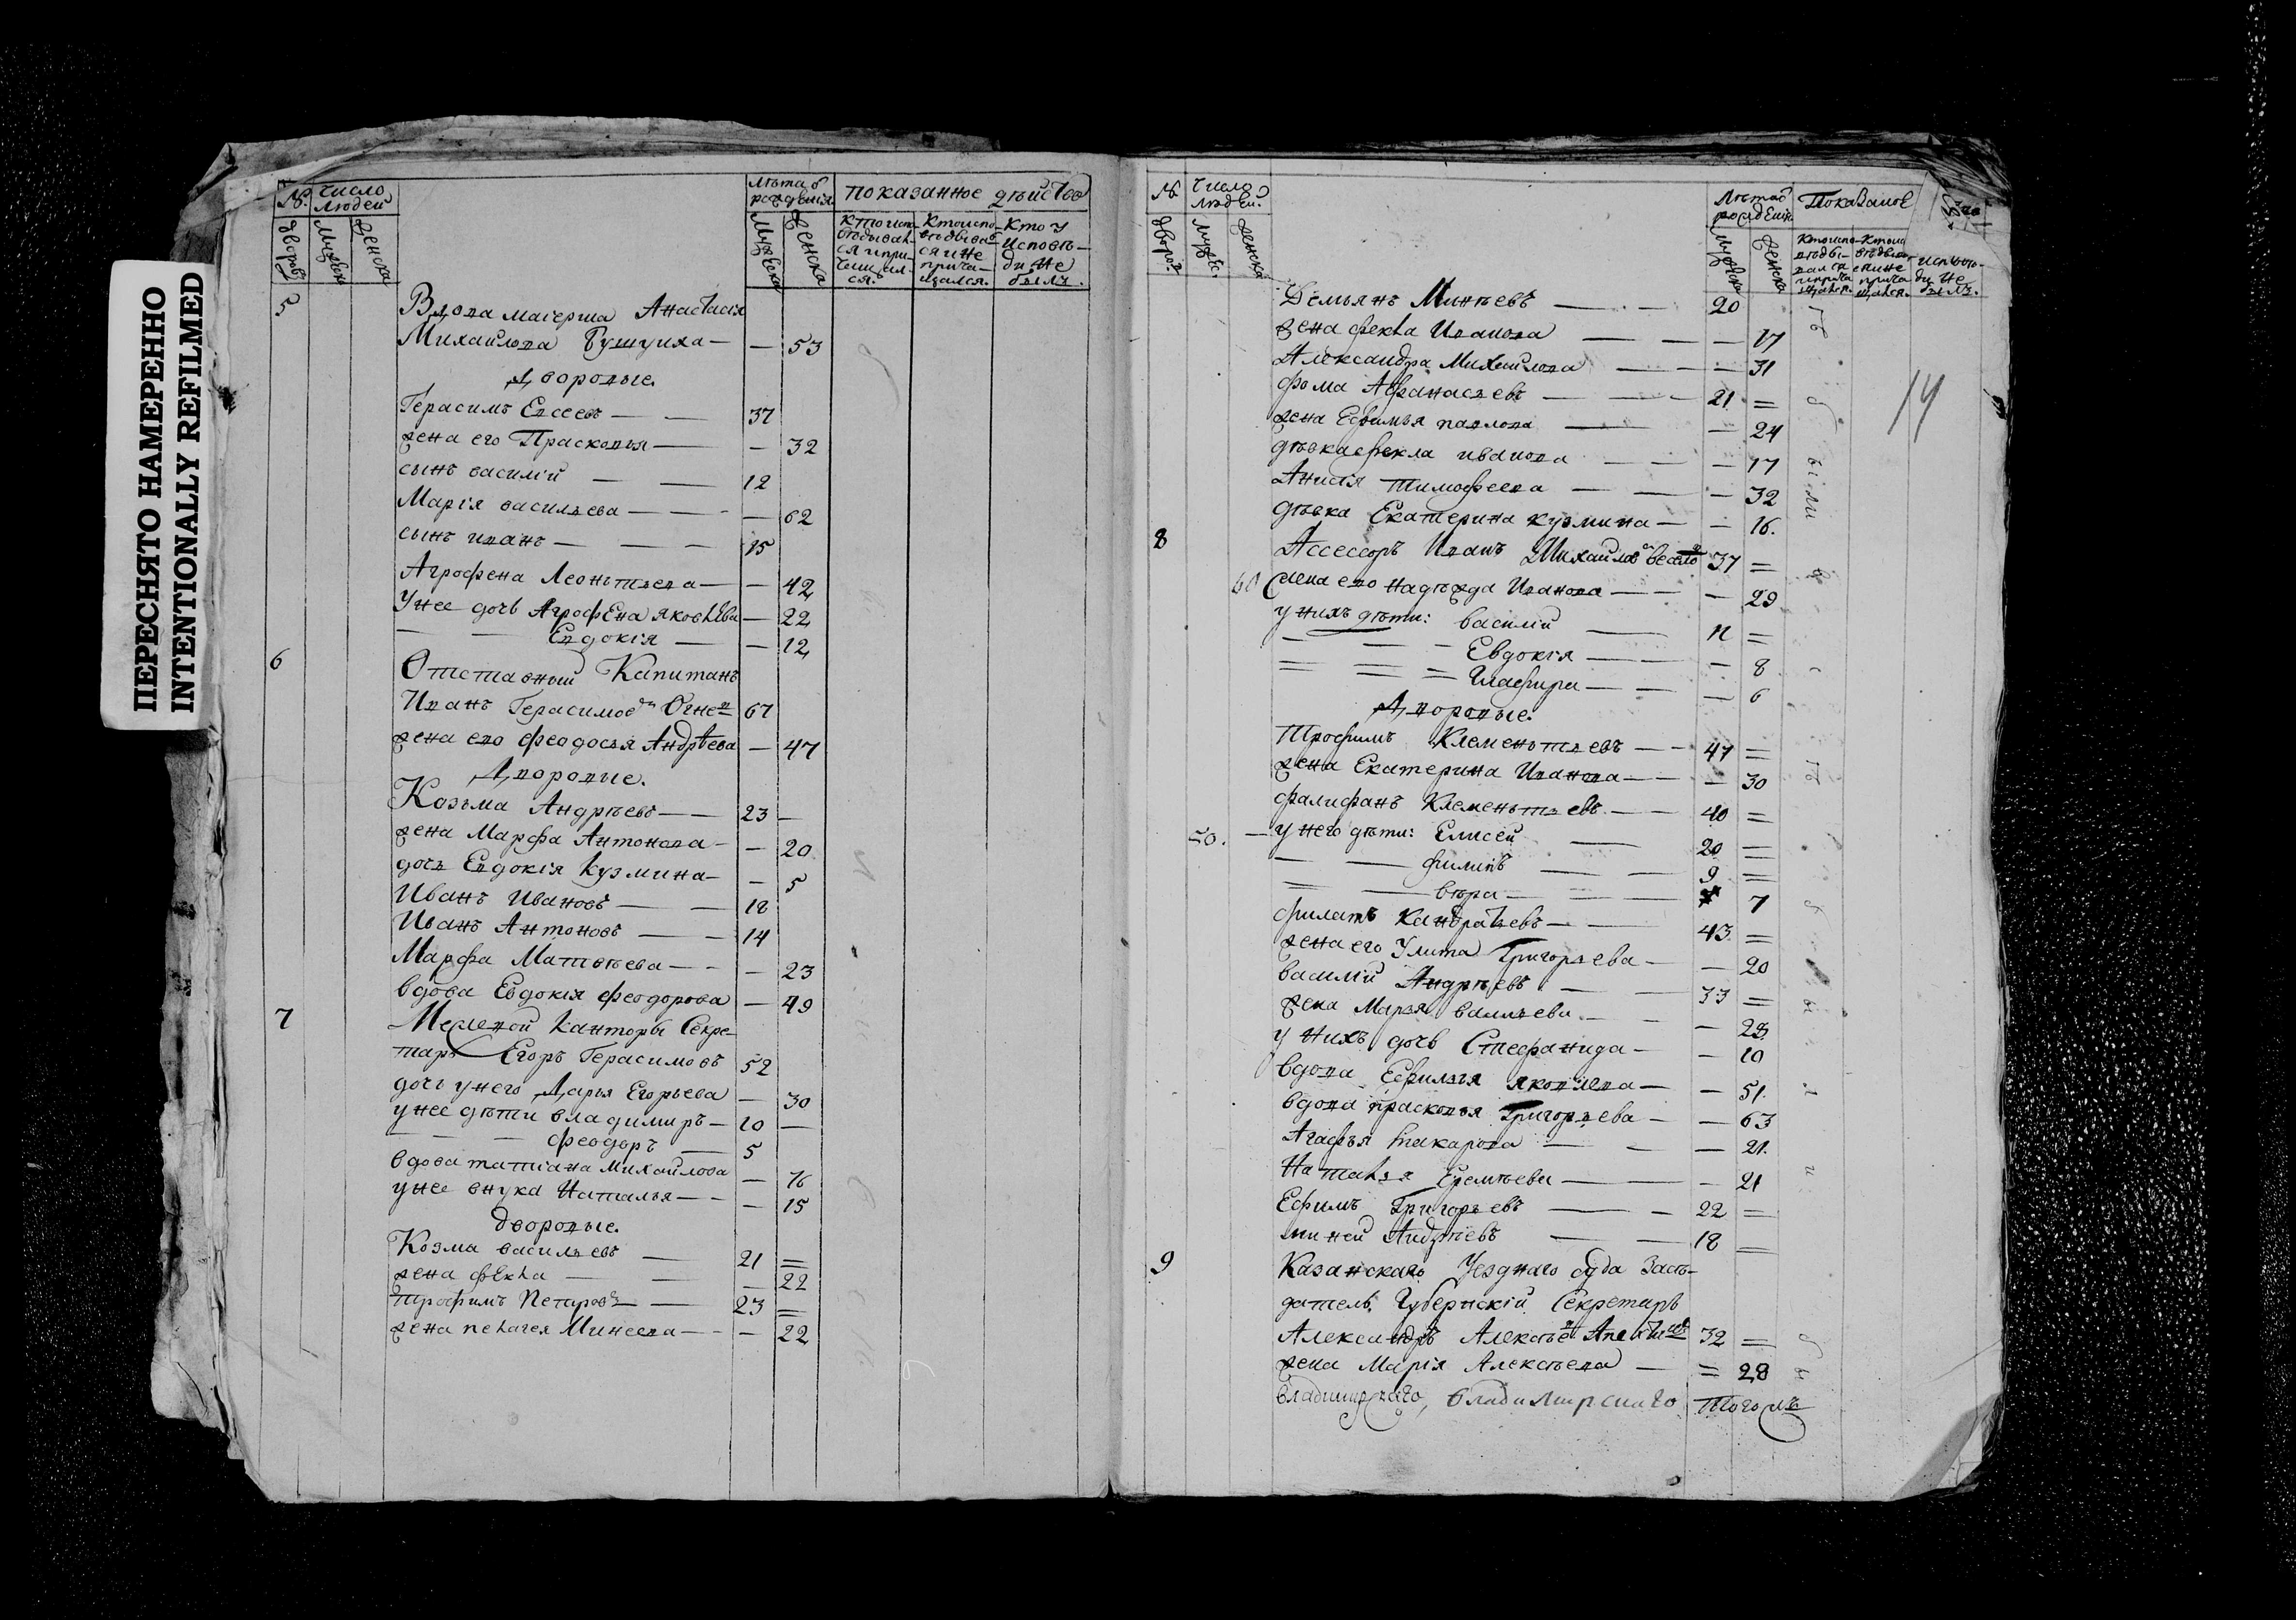 ПЕРЕСНЯТО НАМЕРЕННО
INTENTIONALLY REFILMED
№. Число людей
Лѣта ѿ рожденія
показанное дѣйство
дворовъ
мужеска
женска
мужеска
женска
Кто испо-
вѣдывал-
ся и при-
чищал-
ся.
Кто испо-
вѣдывав
ся и не
прича-
щался.
Кто у
исповѣ-
ди не
былъ.
5
Вдова маіерша Анастасія
Михайлова Бушуиха — — 53
Дворовые.
Герасимъ Евсеевъ — — 37
жена его Прасковья — — 32
сынъ василій — — 12
Марія васильева — — — 62
сынъ иванъ — — — 15
Агрофена Леонтьева — — 42
У нее дочь АгрофЕна яковлева — 22
— — Евдокія — — 12
6
Отставный Капитанъ
Иванъ Герасимов 67
жена его феодосья Андрѣева — 47
Дворовые.
Козьма Андрѣевъ — — 23 —
жена Марфа Антонова — — 20
дочь Евдокія Кузмина — — 5
Иванъ Ивановъ — — 18
Иванъ Антоновъ — — 14
Марфа Матвѣева — — — 23
вдова Евдокія феодорова — 49
7
Межевой Канторы Секре
тарь Егоръ Герасимовъ 52
дочь у него Дарья Егорьева — 30
у нее дѣти владимиръ — 10 —
— — — феодоръ — 5
вдова татіана Михайлова — 76
у нее внука Наталья — — — 15
дворовые.
Козма васильевъ — 21 =
жена фЕкла — — — 22
Трофимъ Петровъ — — 23 =
жена пелагея Минеева — — — 22
№ Число людей.
Лѣта ѿ рожденія
Показаное
дворов.
мужес.
женска
мужеска
женска
Кто испо-
вѣды-
вался
и прича
щался.
вѣдывал
ся и не
прича
щался.
исповѣ-
ди не
былъ.
14
Демьянъ Минѣевъ — — 20
жена фекла Иванова — — — 17
Александра Михайлова — — — 31
фома Афанасьевъ — — — 21 =
жена Ефимья павлова — — 24
дѣвка фекла иванова — — — 17
Анисія Тимофеева — — — 32
дѣвка Екатерина кузмина — — 16.
8
Ассессоръ Иванъ Михайлов 37 =
60 жена его надежда Иванова — — — 29
у нихъ дѣти: василій — 11 =
— — — Евдокія — — — 8
= = = Глафира — — — 6
Дворовые.
Трофимъ Клементьевъ — — 47 =
жена Екатерина Иванова — — — 30
фалифанъ Клементьевъ — — 40 =
50. — у него дѣти: Елисей — 20 =
— — филипъ — — 9 =
— — вѣра — — — 7
филатъ Кандратьевъ — — 43 =
жена его Улита Григорьева — — 20
василій Андрѣевъ — — 33 =
жена Марья васильева — — — 28
у нихъ дочь Стефанида — — 10
вдова Ефимья яковлева — — 51.
вдова прасковья Григорьева — — 63
Агафья макарова — — — 21.
Наталья Еремѣева — — — 21
Ефимъ Григорьевъ — — 22 =
миней Андрѣевъ — — 18 =
9
Казанскаго Уезднаго суда Засѣ-
датель, Губернскій Секретарь
Александръ Алексѣе 32 =
жена Марія Алексѣева — = 28
владимирскаго, владимирскаго Того жъ